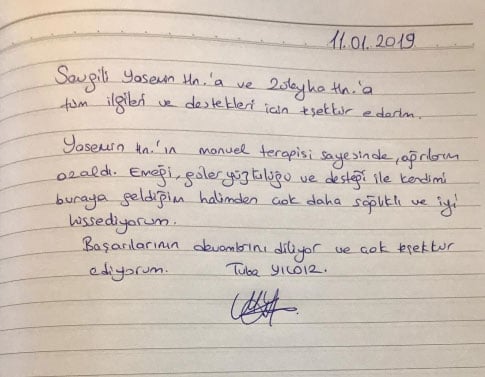 11.01.2019
Sevgili Yasemin Hn.'a ve Zöleyha Hn.'a
tüm ilgileri ve destekleri için teşekkür ederim.
Yasemin Hn.'ın manuel terapisi sayesinde, ağrılarım
azaldı. Emeği, güler yüzlülüğü ve desteği ile kendimi
buraya geldiğim halimden çok daha sağlıklı ve iyi
hissediyorum.
Başarılarının devamlarını diliyor ve çok teşekkür
ediyorum. Tuba YILDIZ.